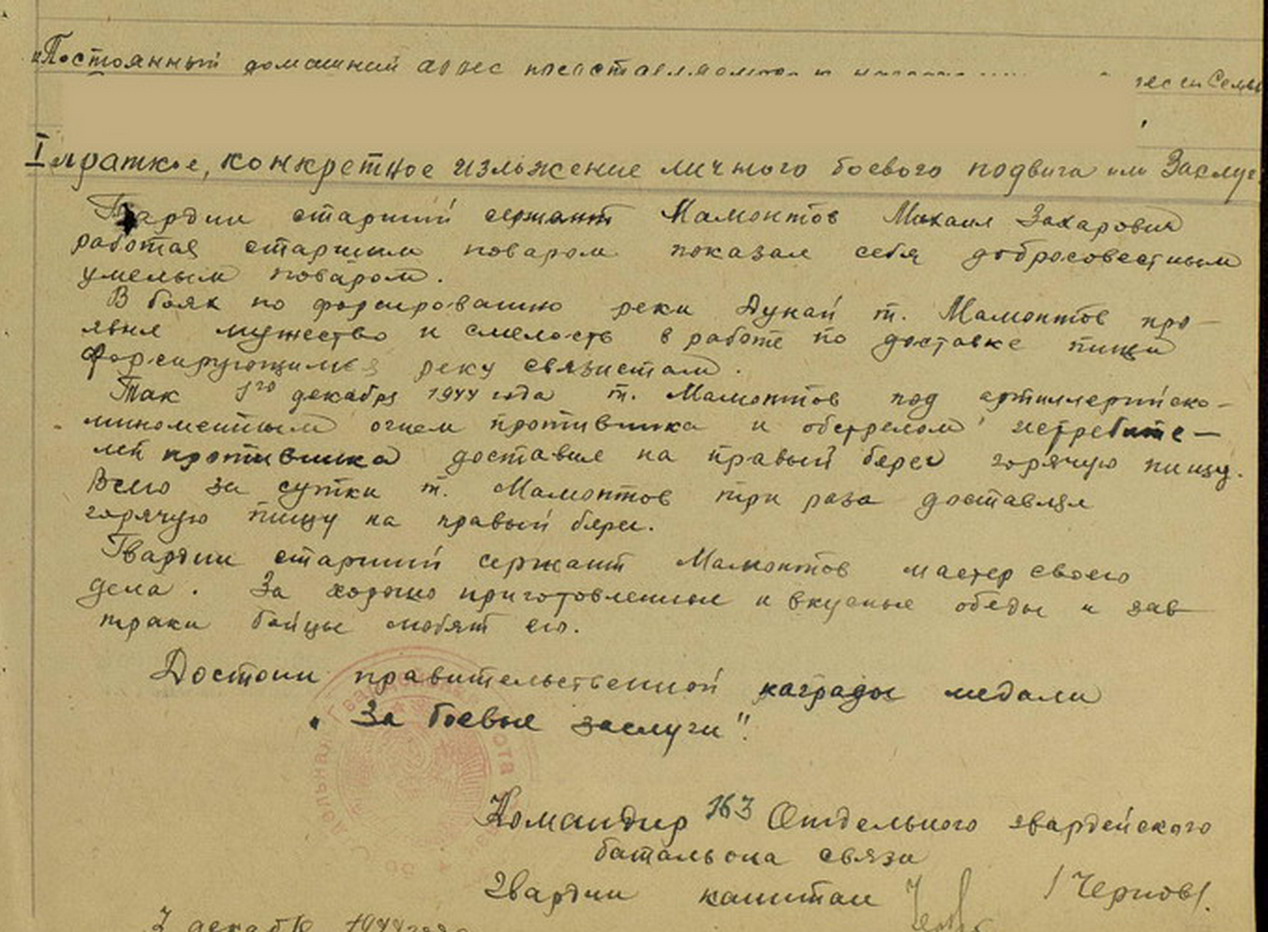 Постоянный домашний адрес представляемого к
Семьи
I Краткое, конкретное изложение личного боевого подвига или Заслуг
Гвардии старший сержант Мамонтов Михаил Захарович
работая старшим поваром показал себя добросовестным
умелым поваром.
В боях по форсированию реки Дунай т. Мамонтов про-
явил мужество и смелость в работе по доставке пищи
форсирующим реку связистам.
Так 1го декабря 1944 года т. Мамонтов под артиллерийско-
миномётным огнем противника и обстрелом истребите-
лей противника доставил на правый берег горячую пищу.
Всего за сутки т. Мамонтов три раза доставлял
горячую пищу на правый берег.
Гвардии старший сержант Мамонтов мастер своего
дела. За хорошо приготовленные и вкусные обеды и зав
траки бойцы любят его.
Достоин правительственной награды медали
„За боевые заслуги".
Командир 163 Отдельного гвардейского
батальона связи
Гвардии капитан /Чернов/.
декабря 1944 года